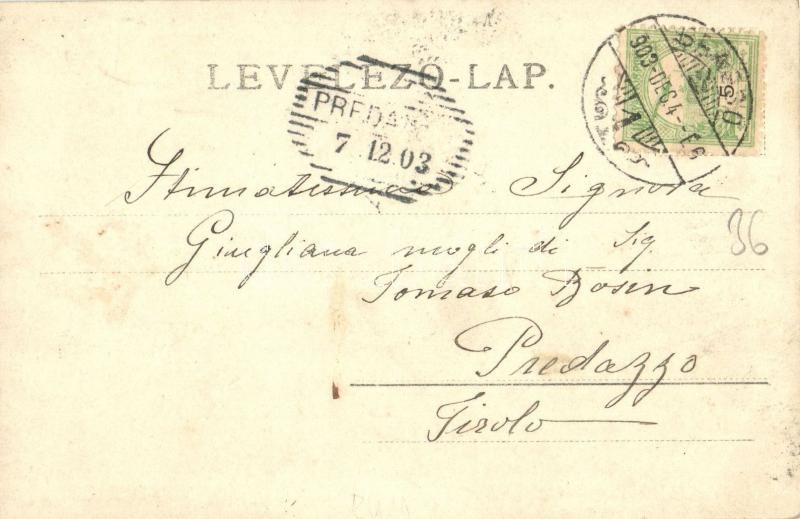 LEVELEZŐ-LAP.
PREDAZ
7 12 03
903 DEC 4
5
Stimatissima Signora
Giugliana mogli di Sig.
Tomaso Bosin
Predazzo
Tirolo
36